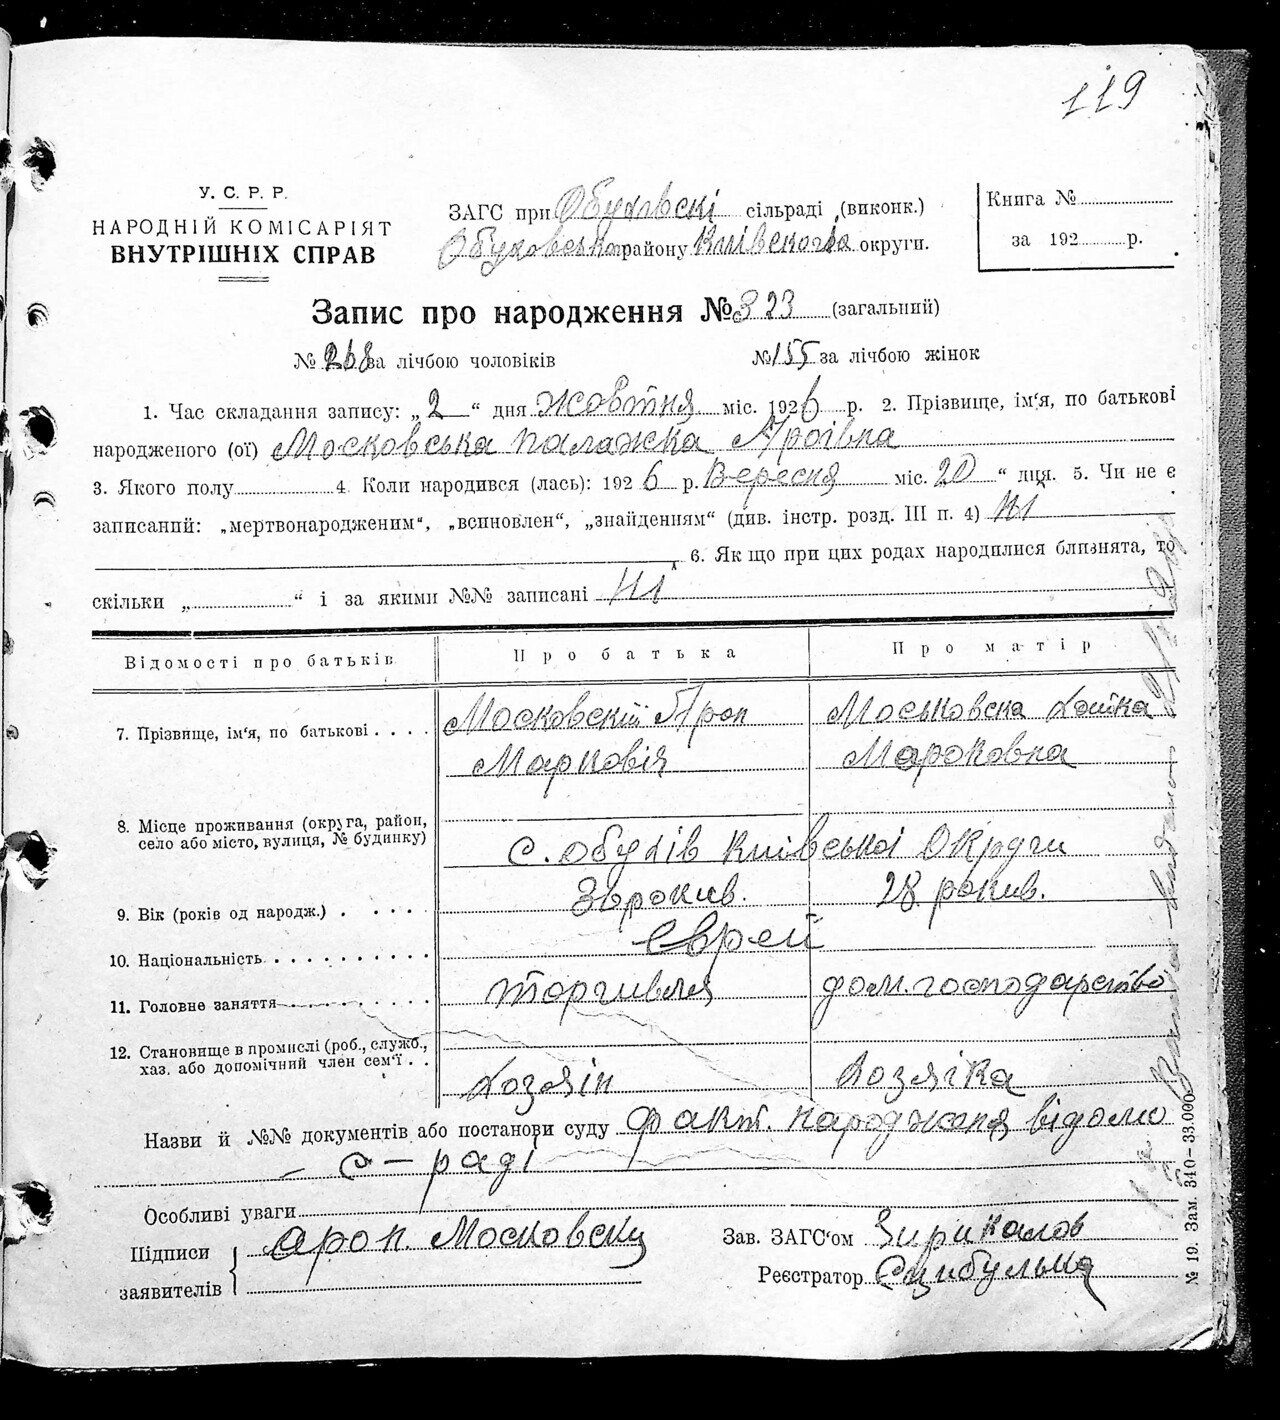 119
У. С. Р. Р.
НАРОДНІЙ КОМІСАРІЯТ
ВНУТРІШНІХ СПРАВ
ЗАГС при Обухівскі сільраді (виконк.)
Обуховсько району Київского округи.
Книга №
за 192 р.
Запис про народження № 323 (загальний)
№ 268 за лічбою чоловіків № 155 за лічбою жінок
1. Час складання запису: „2“ дня жовтня міс. 1926 р. 2. Прізвище, ім'я, по батькові
народженого (ої) Московська Палажка Ароівна
3. Якого полу 4. Коли народився (лась): 1926 р. Вересня міс. 20 “ дня. 5. Чи не є
записаний: „мертвонародженим“, „всиновлен“, „знайденням“ (див. інстр. розд. III п. 4) Ні
6. Як що при цих родах народилися близнята, то
скільки „ “ і за якими №№ записані Ні
Відомості про батьків Про батька Про матір
7. Прізвище, ім'я, по батькові Московский Арон Маркович Моськовска Хайка Марковна
8. Місце проживання (округа, район,
село або місто, вулиця, № будинку) с. Обухів Київської Округи
9. Вік (років од народж.) рокив. 28 рокив.
10. Національність Єврей
11. Головне заняття торгивля дом. господарство
12. Становище в промислі (роб., служб.,
хаз. або допомічний член сем'ї Хозяін Хозяіка
Назви й №№ документів або постанови суду факт. народженя відомо
с-раді
Особливі уваги
Підписи
заявителів
Арон Московски
Зав. ЗАГС'ом
Реєстратор Є Цибулька
№ 19. Зам. 340—33.000